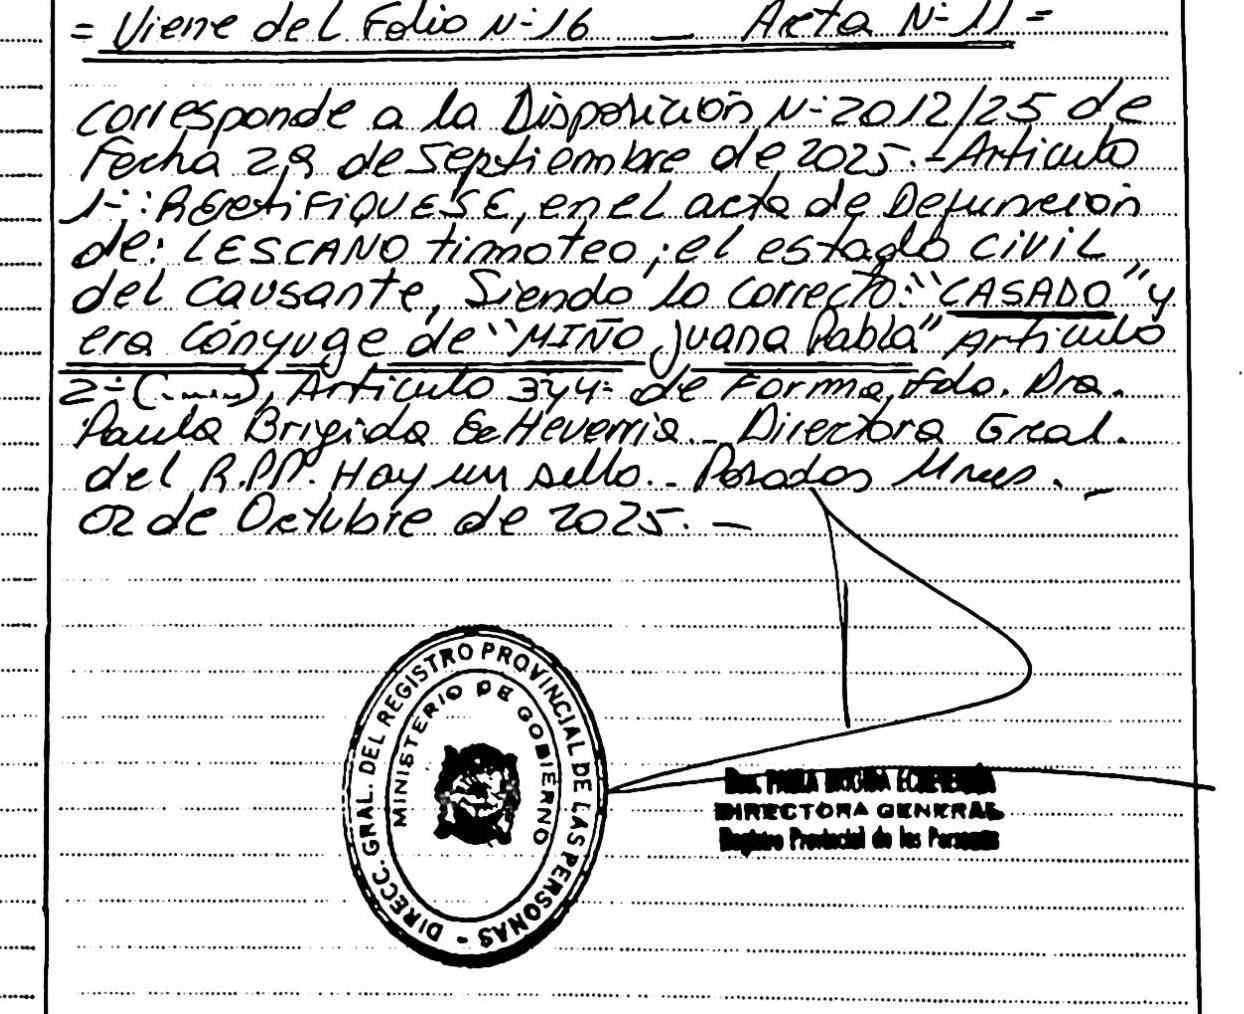 = Viene del Folio N-16 — Acta N- 11 =
corresponde a la Disposición N-2012/25 de
Fecha 29 de Septiembre de 2025.-Articulo
1-: RECtiFIQUESE, en el acta de Defunción
de: LESCANO timoteo; el estado CiViL
del Causante, Siendo lo correcto: "CASADO" y
era Cónyuge de "MIÑO Juana Pabla" Articulo
2- (...), Articulo 3y4- de Forma, Fdo. Dra.
Paula Brigida EcHeverria.- Directora Gral.
del R.P.P. Hay un sello.- Posadas Mnes. -
02 de Octubre de 2025. -
DIRECC. GRAL. DEL REGISTRO PROVINCIAL DE LAS PERSONAS -
MINISTERIO DE GOBIERNO
Dra. PAULA BRIGIDA ECHEVERRÍA
DIRECTORA GENERAL
Registro Provincial de las Personas